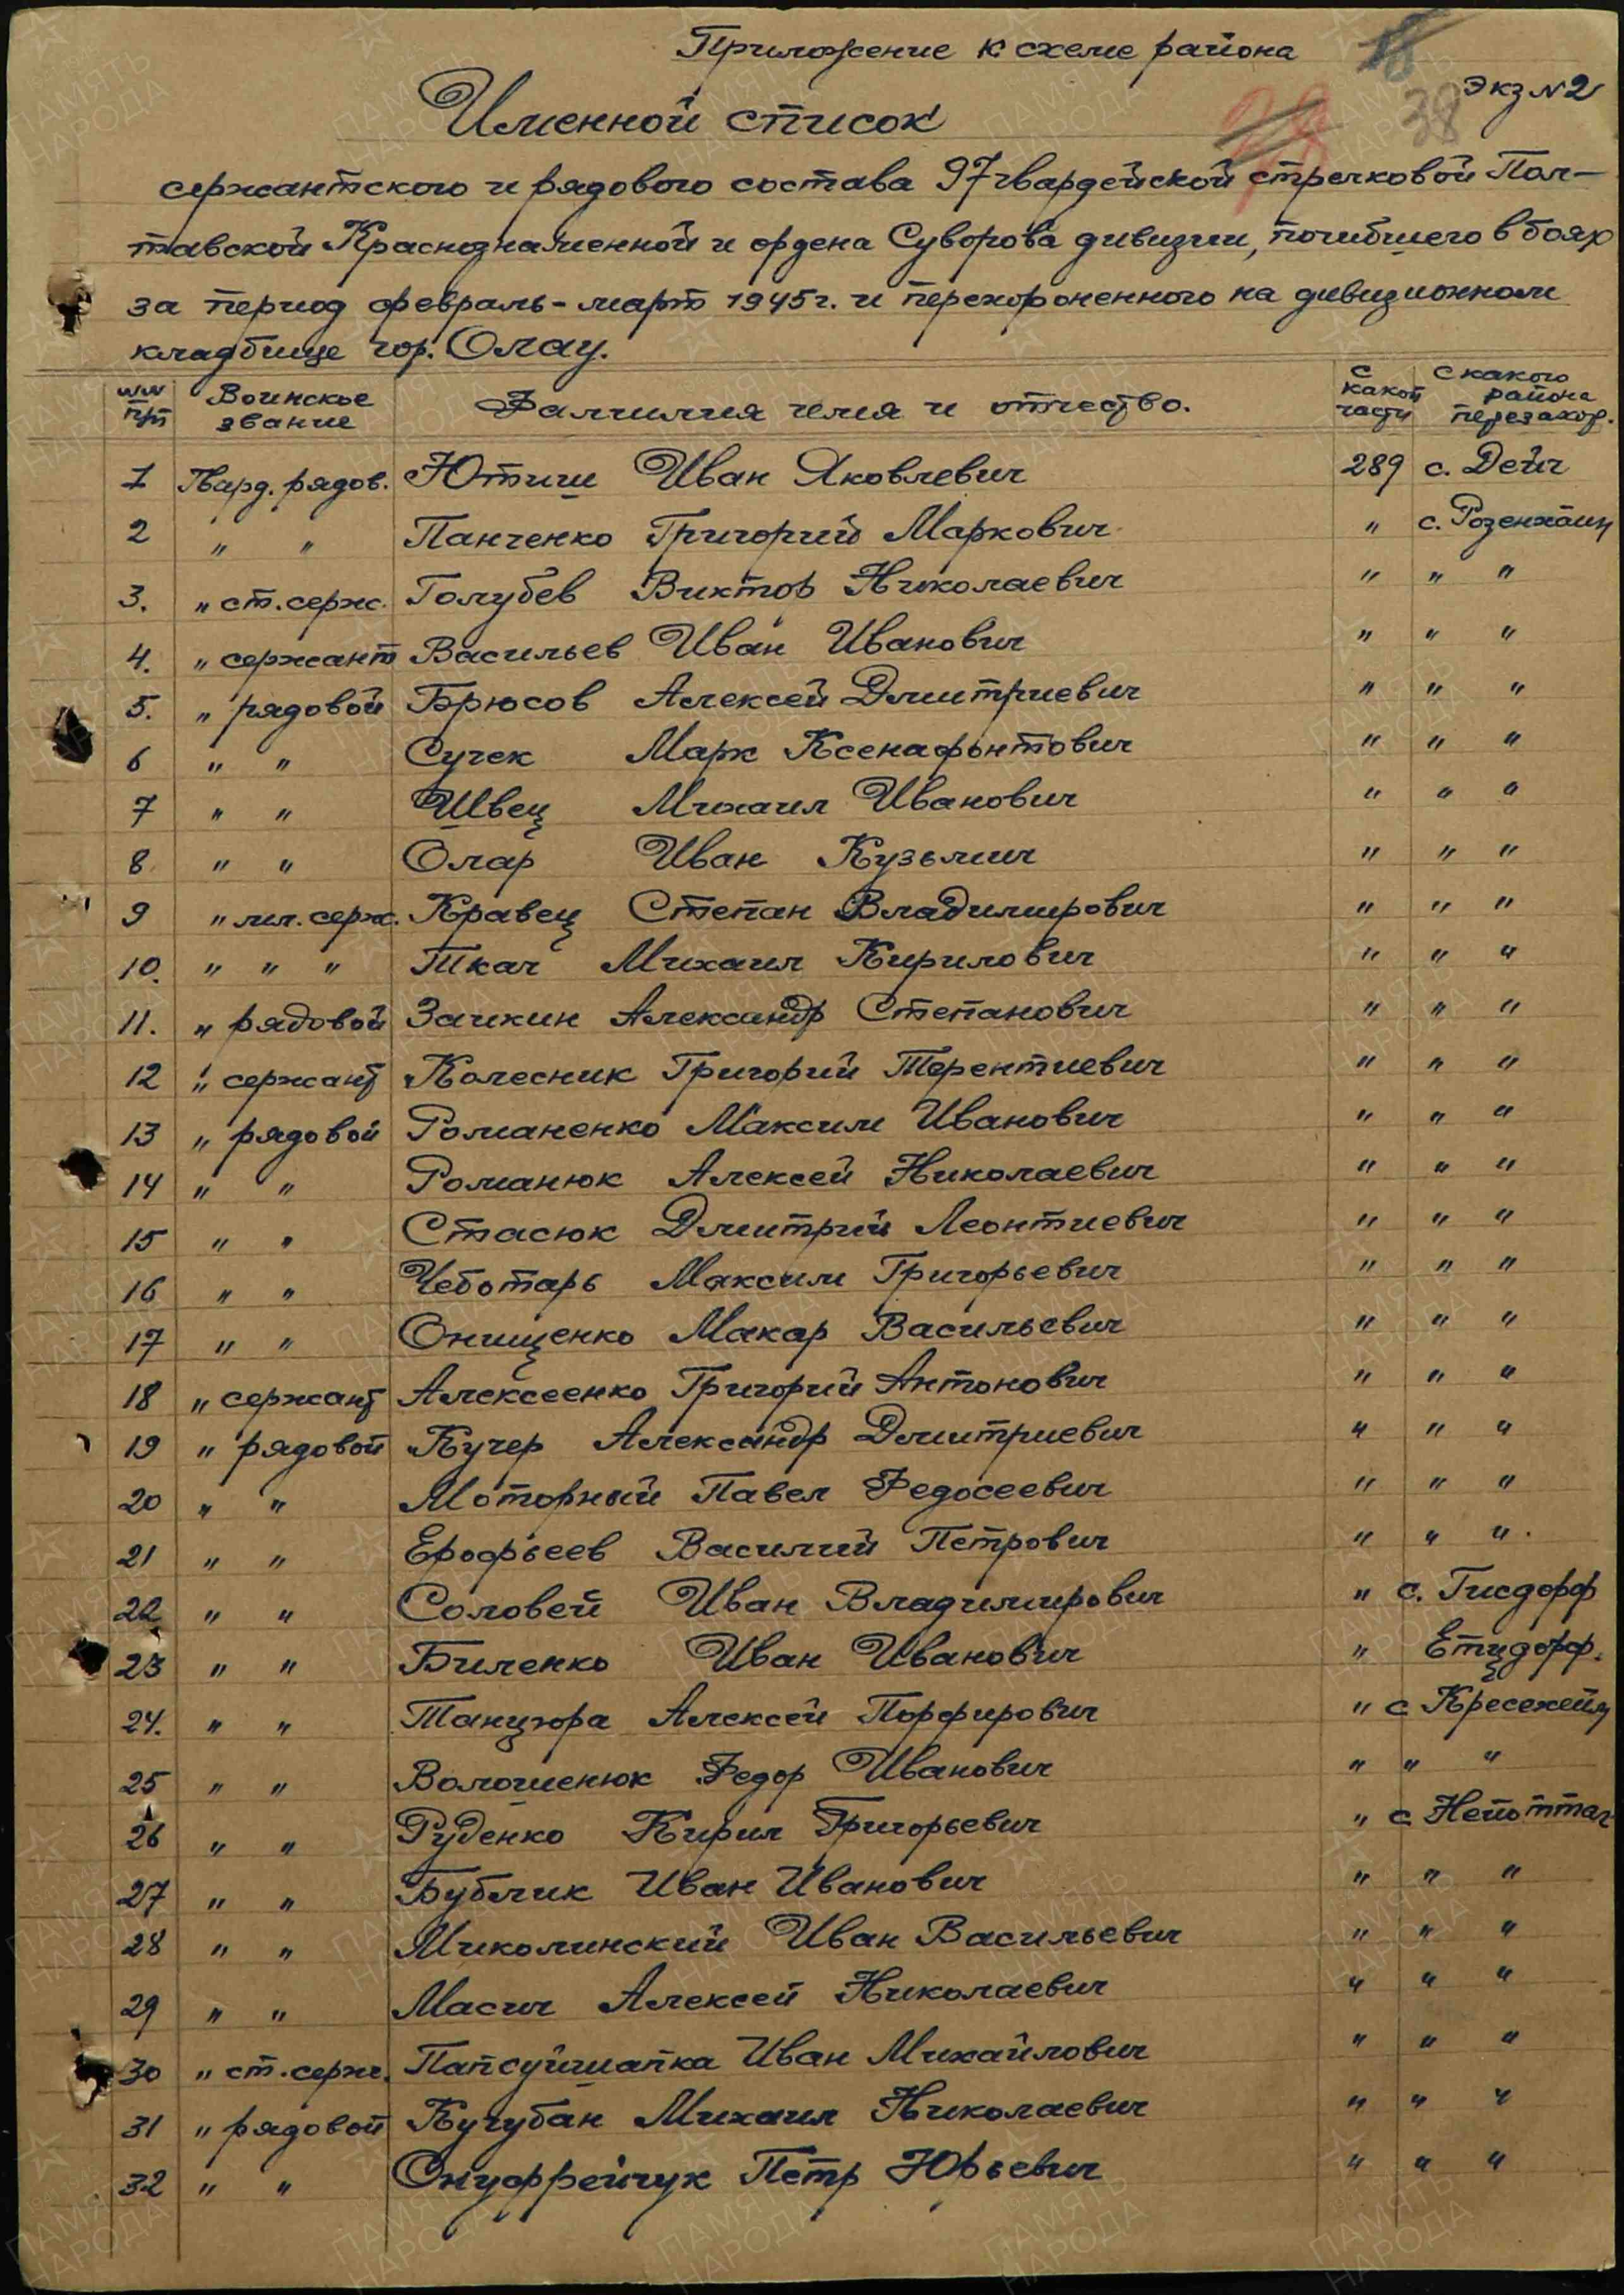 Приложение к схеме района
Экз №2
38
Именной список
сержантского и рядового состава 97 гвардейской стрелковой Пол-
тавской Краснознаменной и ордена Суворова дивизии, погибшего в боях
за период февраль-март 1945г. и перехороненного на дивизионном
кладбище гор. Олау.
№№ п/п Воинское звание Фамилия имя и отчество. С какой части С какого района перезахор.
1 Гвард. рядов. Ютиш Иван Яковлевич 289 с. Дейч
2 " " Панченко Григорий Маркович " с. Розенхайн
3. " ст. серж. Голубев Виктор Николаевич " " "
4. " сержант Васильев Иван Иванович " " "
5. " рядовой Брюсов Алексей Дмитриевич " " "
6 " " Сучек Марк Ксенафонтович " " "
7 " " Швец Михаил Иванович " " "
8 " " Олар Иван Кузьмич " " "
9 " мл. серж. Кравец Степан Владимирович " " "
10. " " " Ткач Михаил Кирилович " " "
11. " рядовой Заикин Александр Степанович " " "
12 " сержант Колесник Григорий Терентиевич " " "
13 " рядовой Романенко Максим Иванович " " "
14 " " Романюк Алексей Николаевич " " "
15 " " Стасюк Дмитрий Леонтиевич " " "
16 " " Чеботарь Максим Григорьевич " " "
17 " " Онищенко Макар Васильевич " " "
18 " сержант Алексеенко Григорий Антонович " " "
19 " рядовой Кучер Александр Дмитриевич " " "
20 " " Моторный Павел Федосеевич " " "
21 " " Ерофьеев Василий Петрович " " "
22 " " Соловей Иван Владимирович " с. Гисдорф
23 " " Биленко Иван Иванович " Етцдорф.
24. " " Танцюра Алексей Порфирович " с Кресехейм
25 " " Волошенюк Федор Иванович " " "
26 " " Руденко Кирил Григорьевич " с
27 " " Бублик Иван Иванович " " "
28 " " Миколинский Иван Васильевич " " "
29 " " Масич Алексей Николаевич " " "
30 " ст. серж. Папсуйшапка Иван Михайлович " " "
31 " рядовой Кучубан Михаил Николаевич " " "
32 " " Онуфрейчук Петр Юрьевич " " "